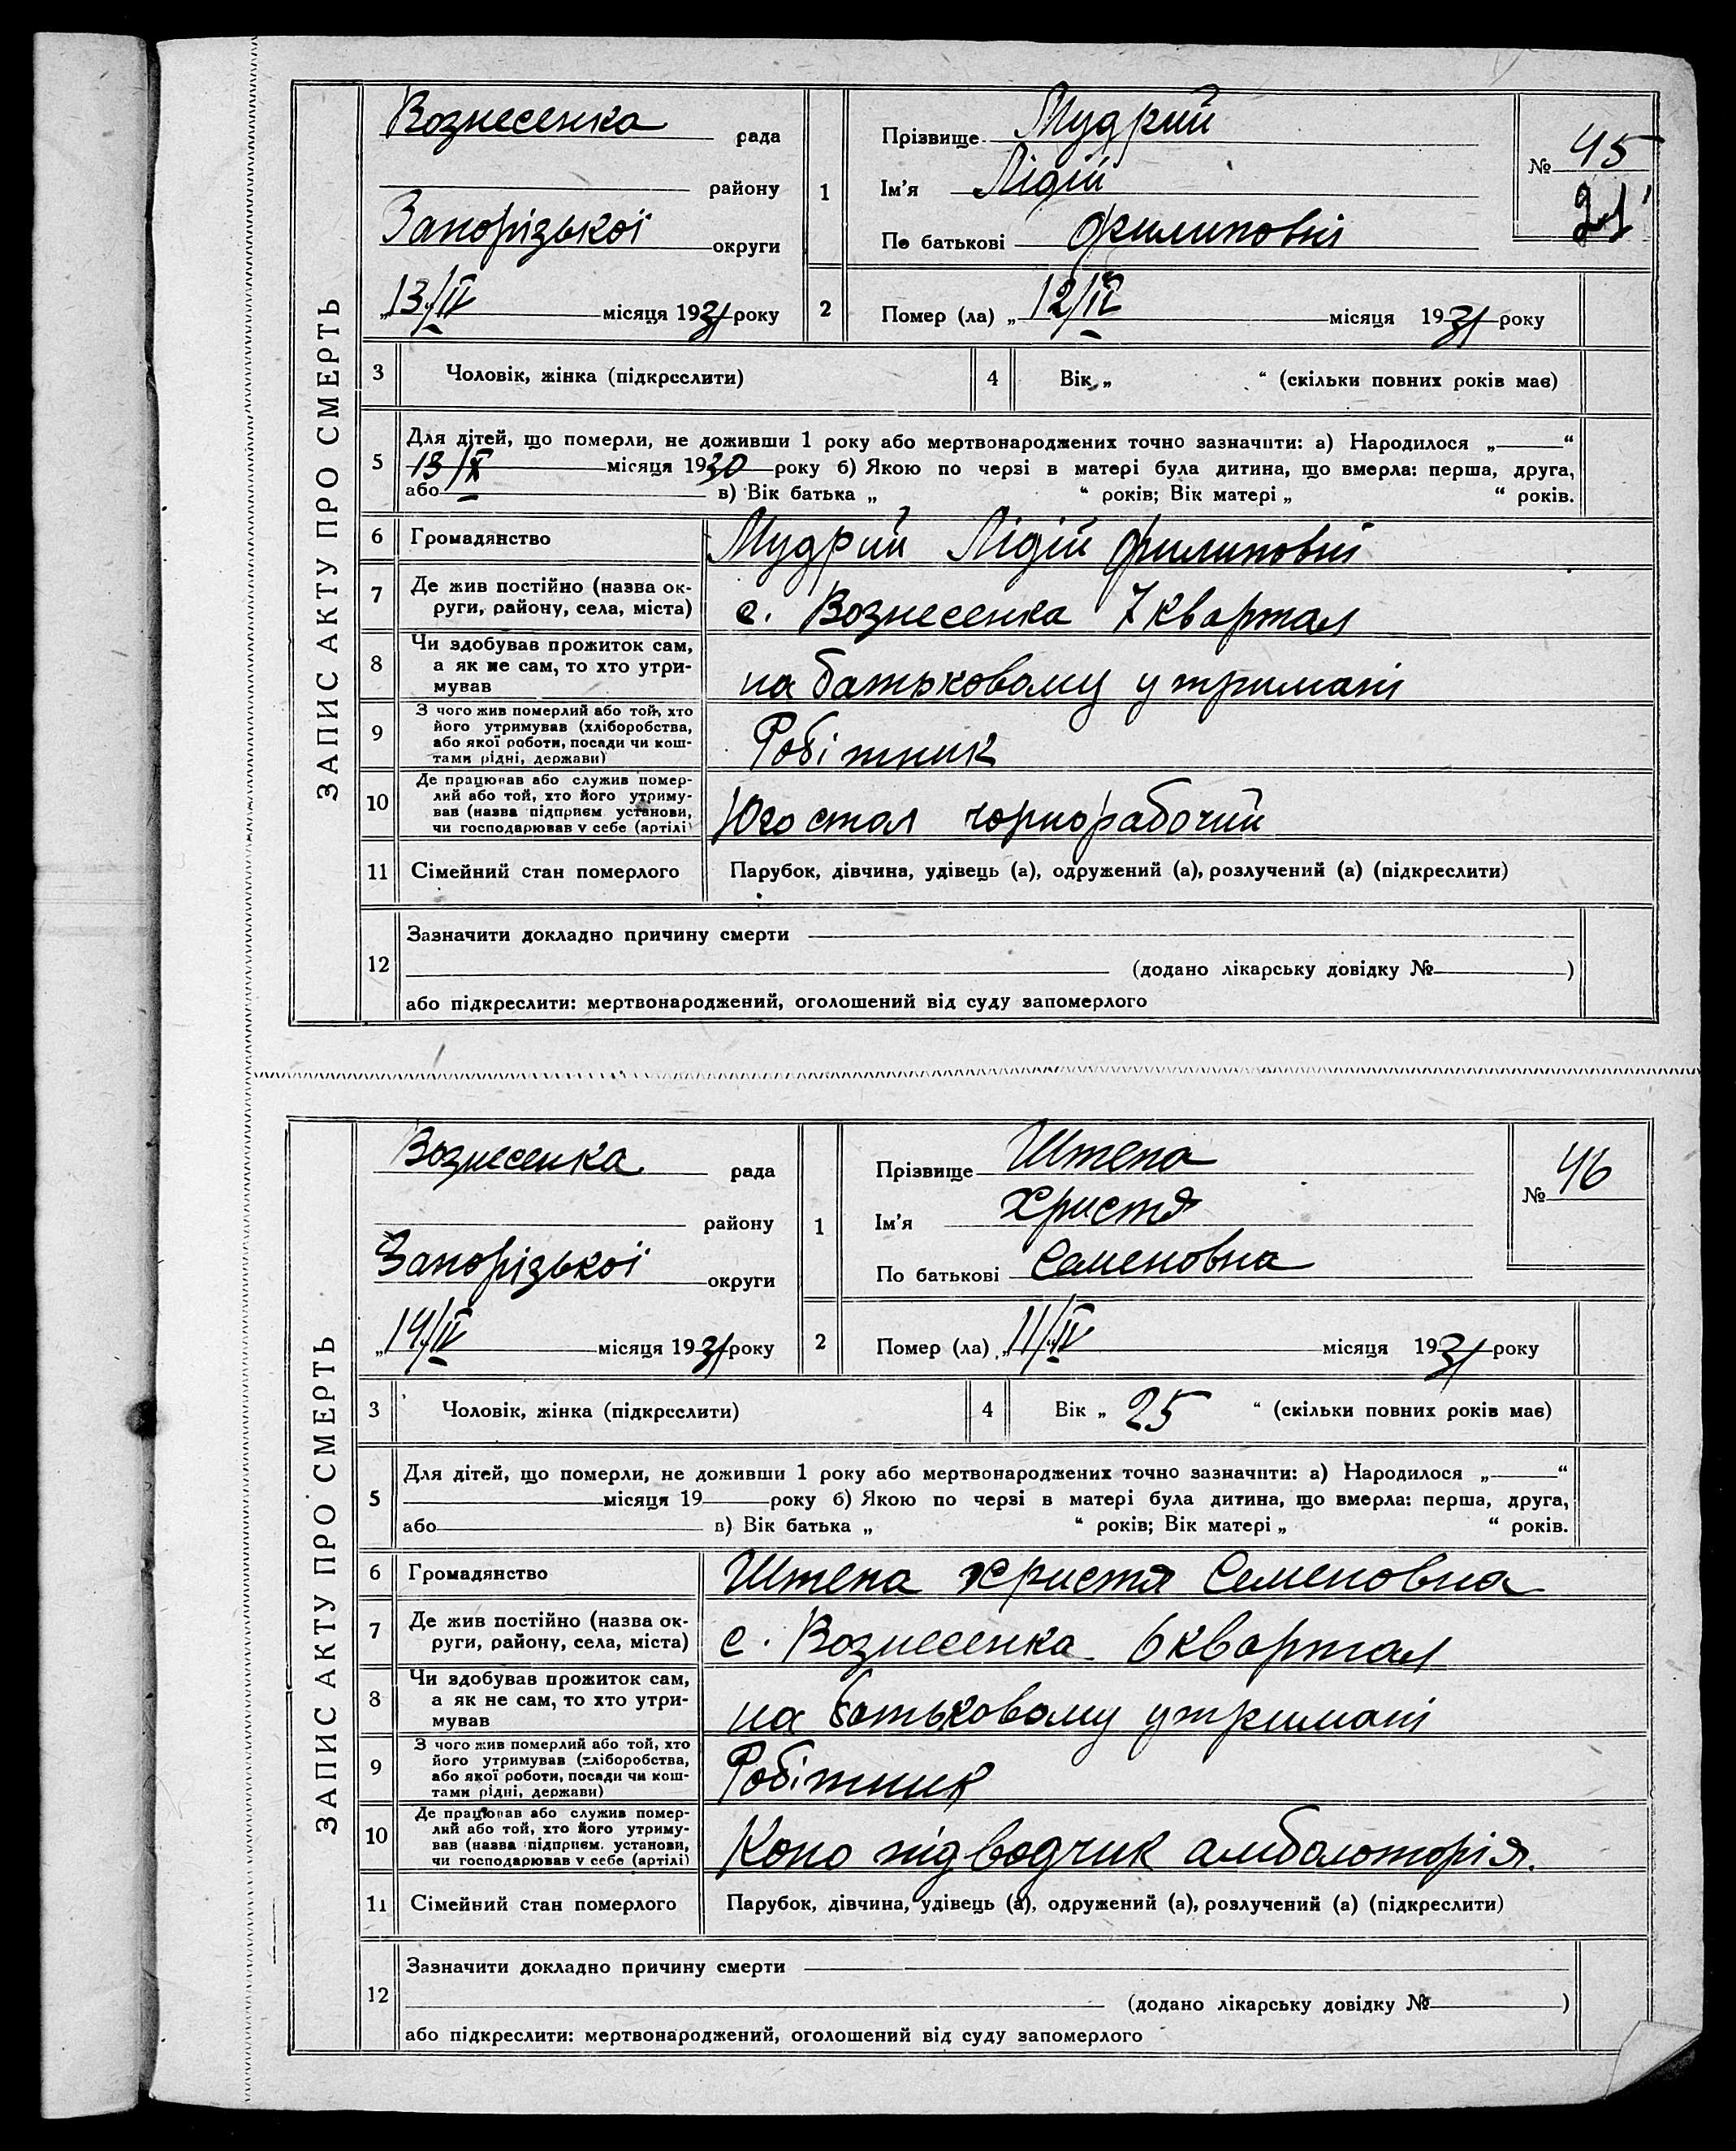 ЗАПИС АКТУ ПРО СМЕРТЬ
Вознесенка рада
району
Запорізької округи
„13/IV місяця 1931 року
1
Прізвище Мудрий
Ім'я Лідій
По батькові Филиповні
№ 45
2
Помер (ла) „12/IV місяця 1931 року
3
Чоловік, жінка (підкреслити)
4
Вік „ “ (скільки повних років має)
5
Для дітей, що померли, не доживши 1 року або мертвонароджених точно зазначити: а) Народилося „ “
13/X місяця 1930 року б) Якою по черзі в матері була дитина, що вмерла: перша, друга,
або в) Вік батька „ “ років; Вік матері „ “ років.
6
Громадянство
Мудрий Лідій Филиповні
7
Де жив постійно (назва ок-
руги, району, села, міста)
с. Вознесенка 7 квартал
8
Чи здобував прожиток сам,
а як не сам, то хто утри-
мував
на батьковому утримані
9
З чого жив померлий або той, хто
його утримував (хліборобства,
або якої роботи, посади чи кош-
тами рідні, держави)
Робітник
10
Де працював або служив помер-
лий або той, хто його утриму-
вав (назва підприєм. установи,
чи господарював у себе (артілі)
Югостал чорнорабочий
11
Сімейний стан померлого
Парубок, дівчина, удівець (а), одружений (а), розлучений (а) (підкреслити)
12
Зазначити докладно причину смерти
(додано лікарську довідку № )
або підкреслити: мертвонароджений, оголошений від суду запомерлого
ЗАПИС АКТУ ПРО СМЕРТЬ
Вознесенка рада
району
Запорізької округи
„14/IV місяця 1931 року
1
Прізвище Штепа
Ім'я Христя
По батькові Семеновна
№ 46
2
Помер (ла) „11/IV місяця 1931 року
3
Чоловік, жінка (підкреслити)
4
Вік „ 25 “ (скільки повних років має)
5
Для дітей, що померли, не доживши 1 року або мертвонароджених точно зазначити: а) Народилося „ “
місяця 19 року б) Якою по черзі в матері була дитина, що вмерла: перша, друга,
або в) Вік батька „ “ років; Вік матері „ “ років.
6
Громадянство
Штепа Христя Семеновна
7
Де жив постійно (назва ок-
руги, району, села, міста)
с. Вознесенка 6 квартал
8
Чи здобував прожиток сам,
а як не сам, то хто утри-
мував
на батьковому утримані
9
З чого жив померлий або той, хто
його утримував (хліборобства,
або якої роботи, посади чи кош-
тами рідні, держави)
Робітник
10
Де працював або служив помер-
лий або той, хто його утриму-
вав (назва підприєм. установи,
чи господарював у себе (артілі)
Коно підводчик амбалоторія.
11
Сімейний стан померлого
Парубок, дівчина, удівець (а), одружений (а), розлучений (а) (підкреслити)
12
Зазначити докладно причину смерти
(додано лікарську довідку № )
або підкреслити: мертвонароджений, оголошений від суду запомерлого